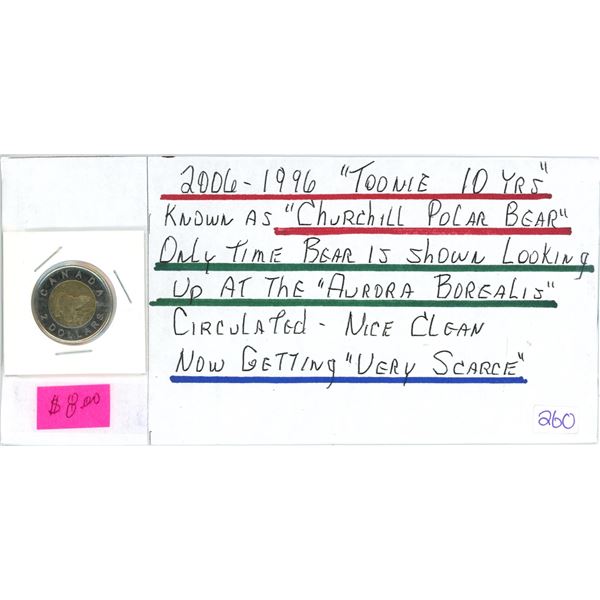 2006-1996 "TOONIE 10 YRS"
KNOWN AS "CHURCHILL POLAR BEAR"
ONLY TIME BEAR IS SHOWN LOOKING
UP AT THE "AURORA BOREALIS"
CIRCULATED - NICE CLEAN
NOW GETTING "VERY SCARCE"
CANADA
2 DOLLARS
$8.00
260